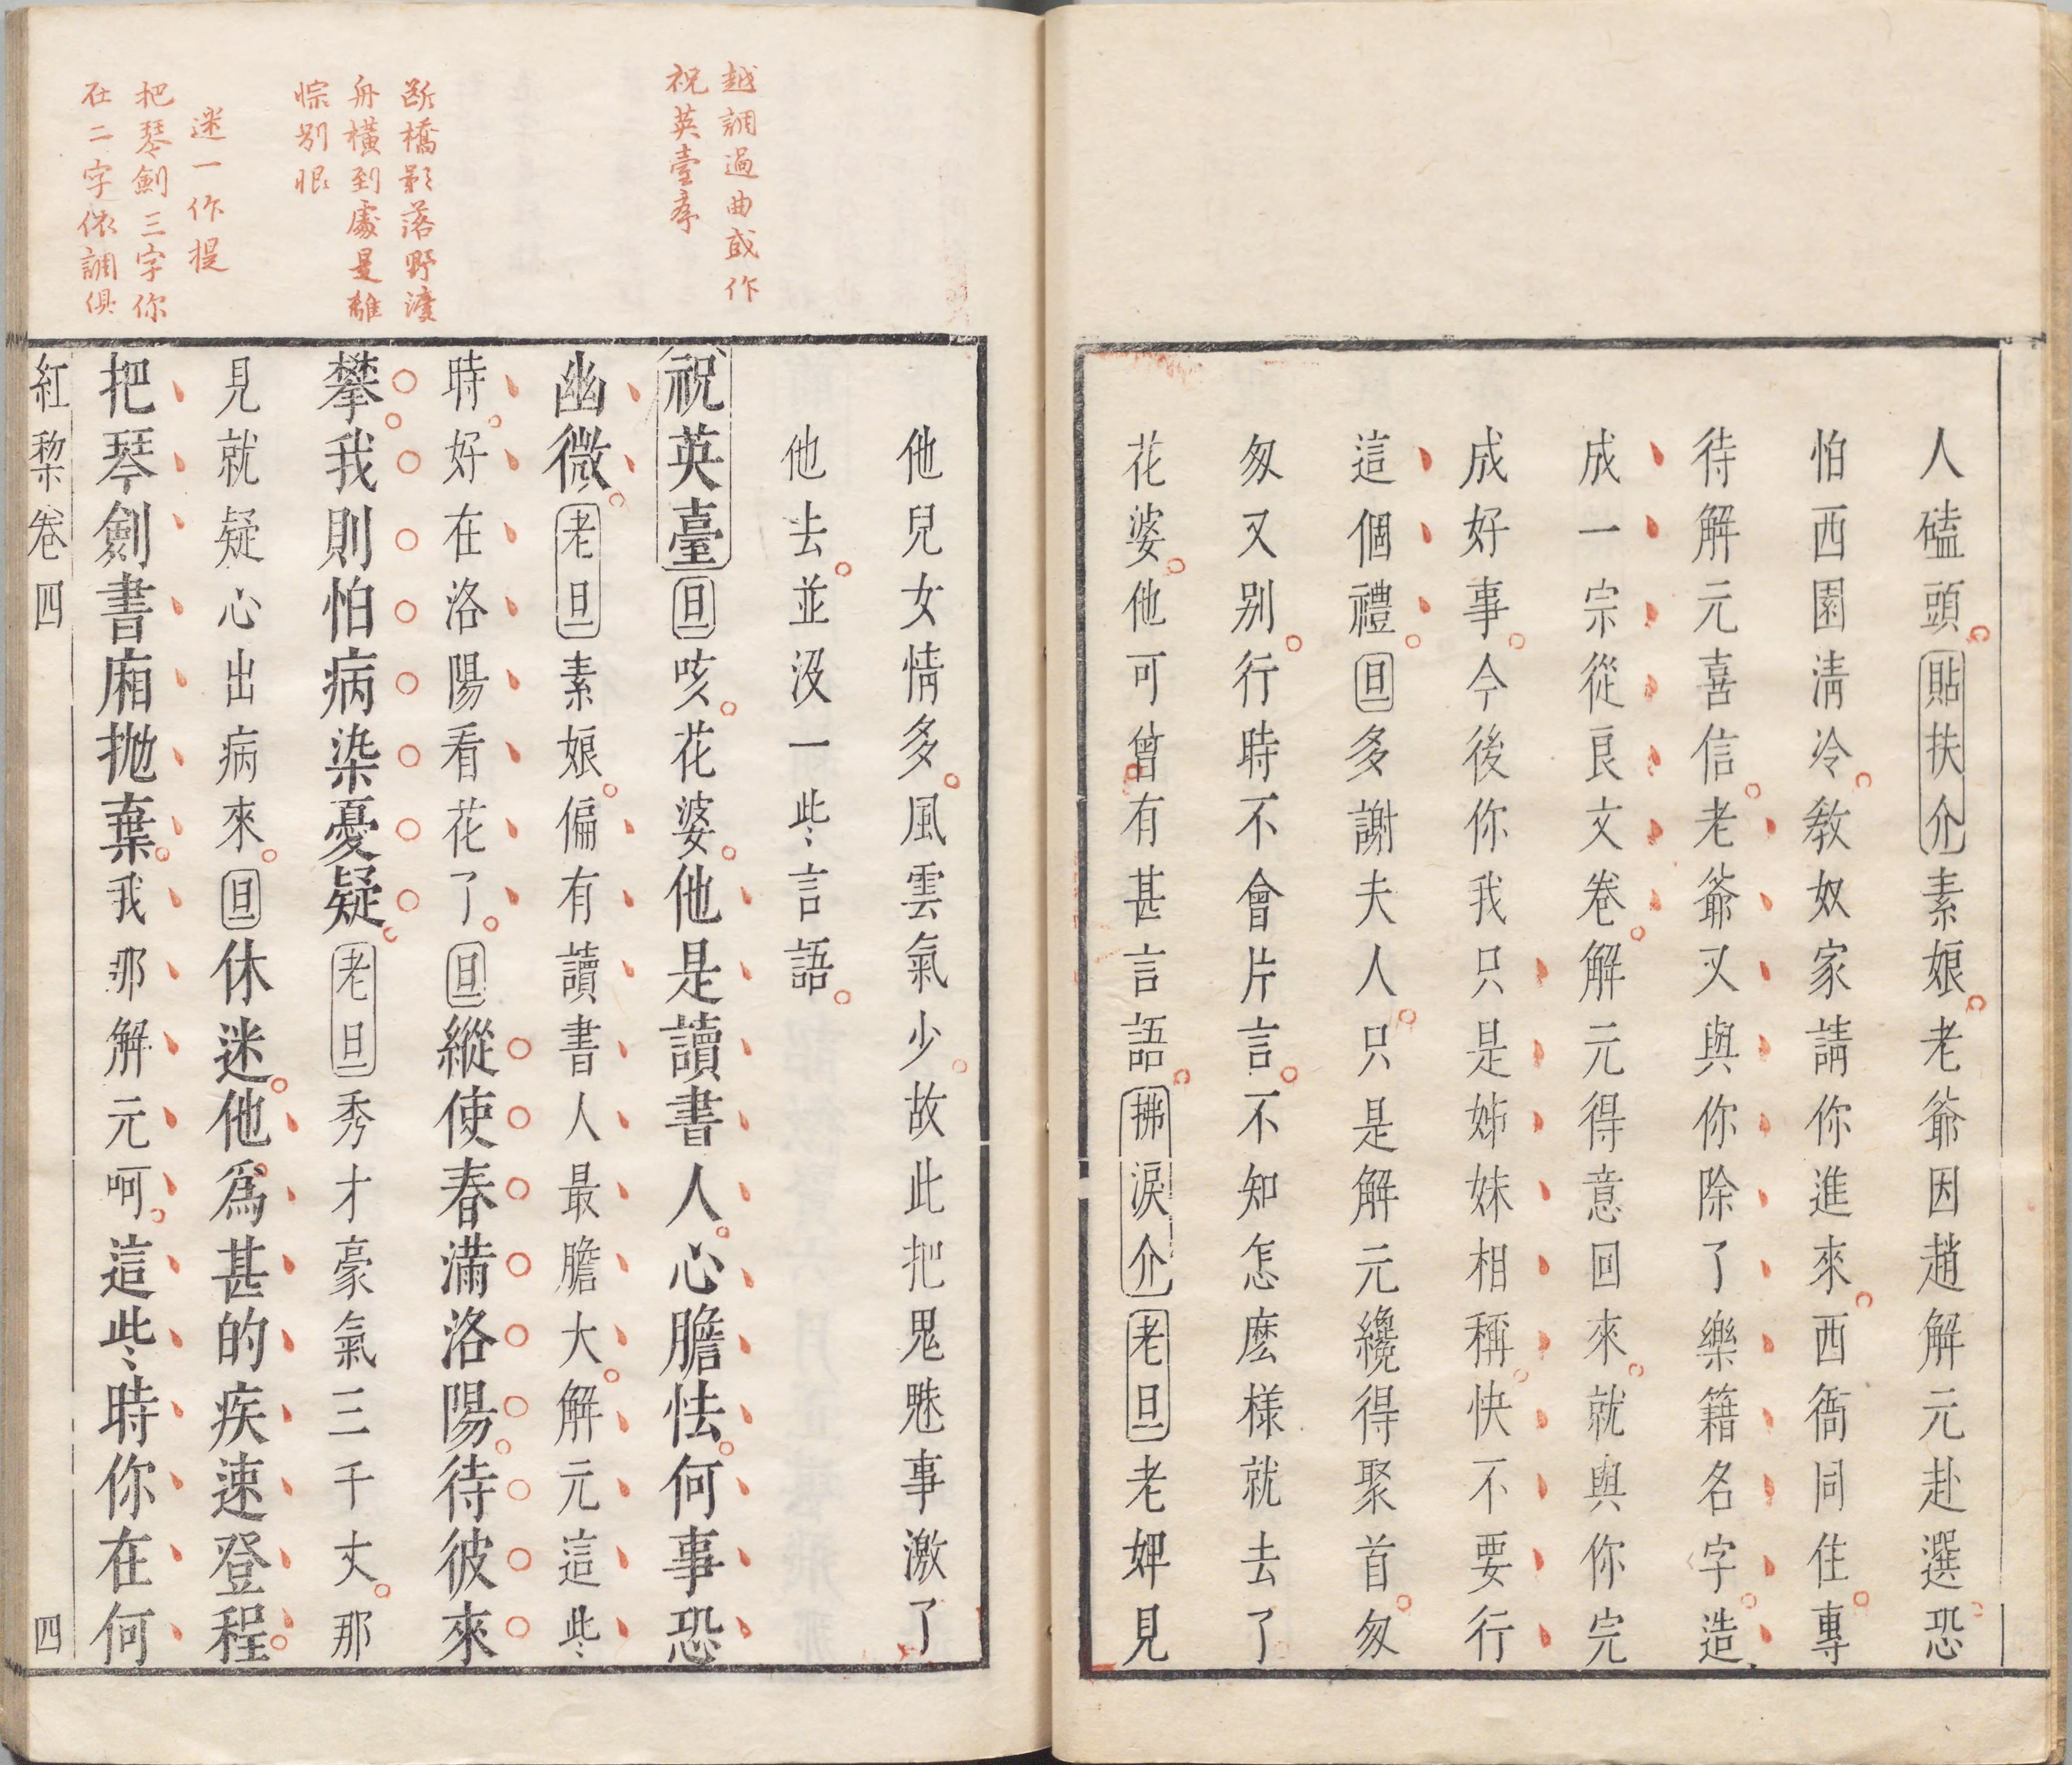 人磕頭貼扶介素娘老爺因趙解元赴選恐
怕西園淸冷教奴家請你進來西衙同住專
待解元喜信老爺又與你除了樂籍名字造
成一宗從良文卷解元得意回來就與你完
成好事今後你我只是姊妹相稱快不要行
這個禮旦多謝夫人只是解元纔得聚首匆
匆又别行時不會片言不知怎麽樣就去了
花婆他可曾有甚言語拂淚介老旦老婢見
他兒女情多風雲氣少故此把鬼魅事激了
他去並沒一些言語
越調過曲或作
祝英臺序
祝英臺旦咳花婆他是讀書人心膽怯何事恐
幽微老旦素娘偏有讀書人最膽大解元這些
斷橋影落野渡
舟橫到處是離
悰别恨
時好在洛陽看花了旦縱使春滿洛陽待彼來
攀我則怕病染憂疑老旦秀才豪氣三千丈那
迷一作提
見就疑心出病來旦休迷他爲甚的疾速登程
把琴劍三字你
在二字依調俱
把琴劍書廂抛棄我那解元呵這些時你在何
紅梨卷四
四